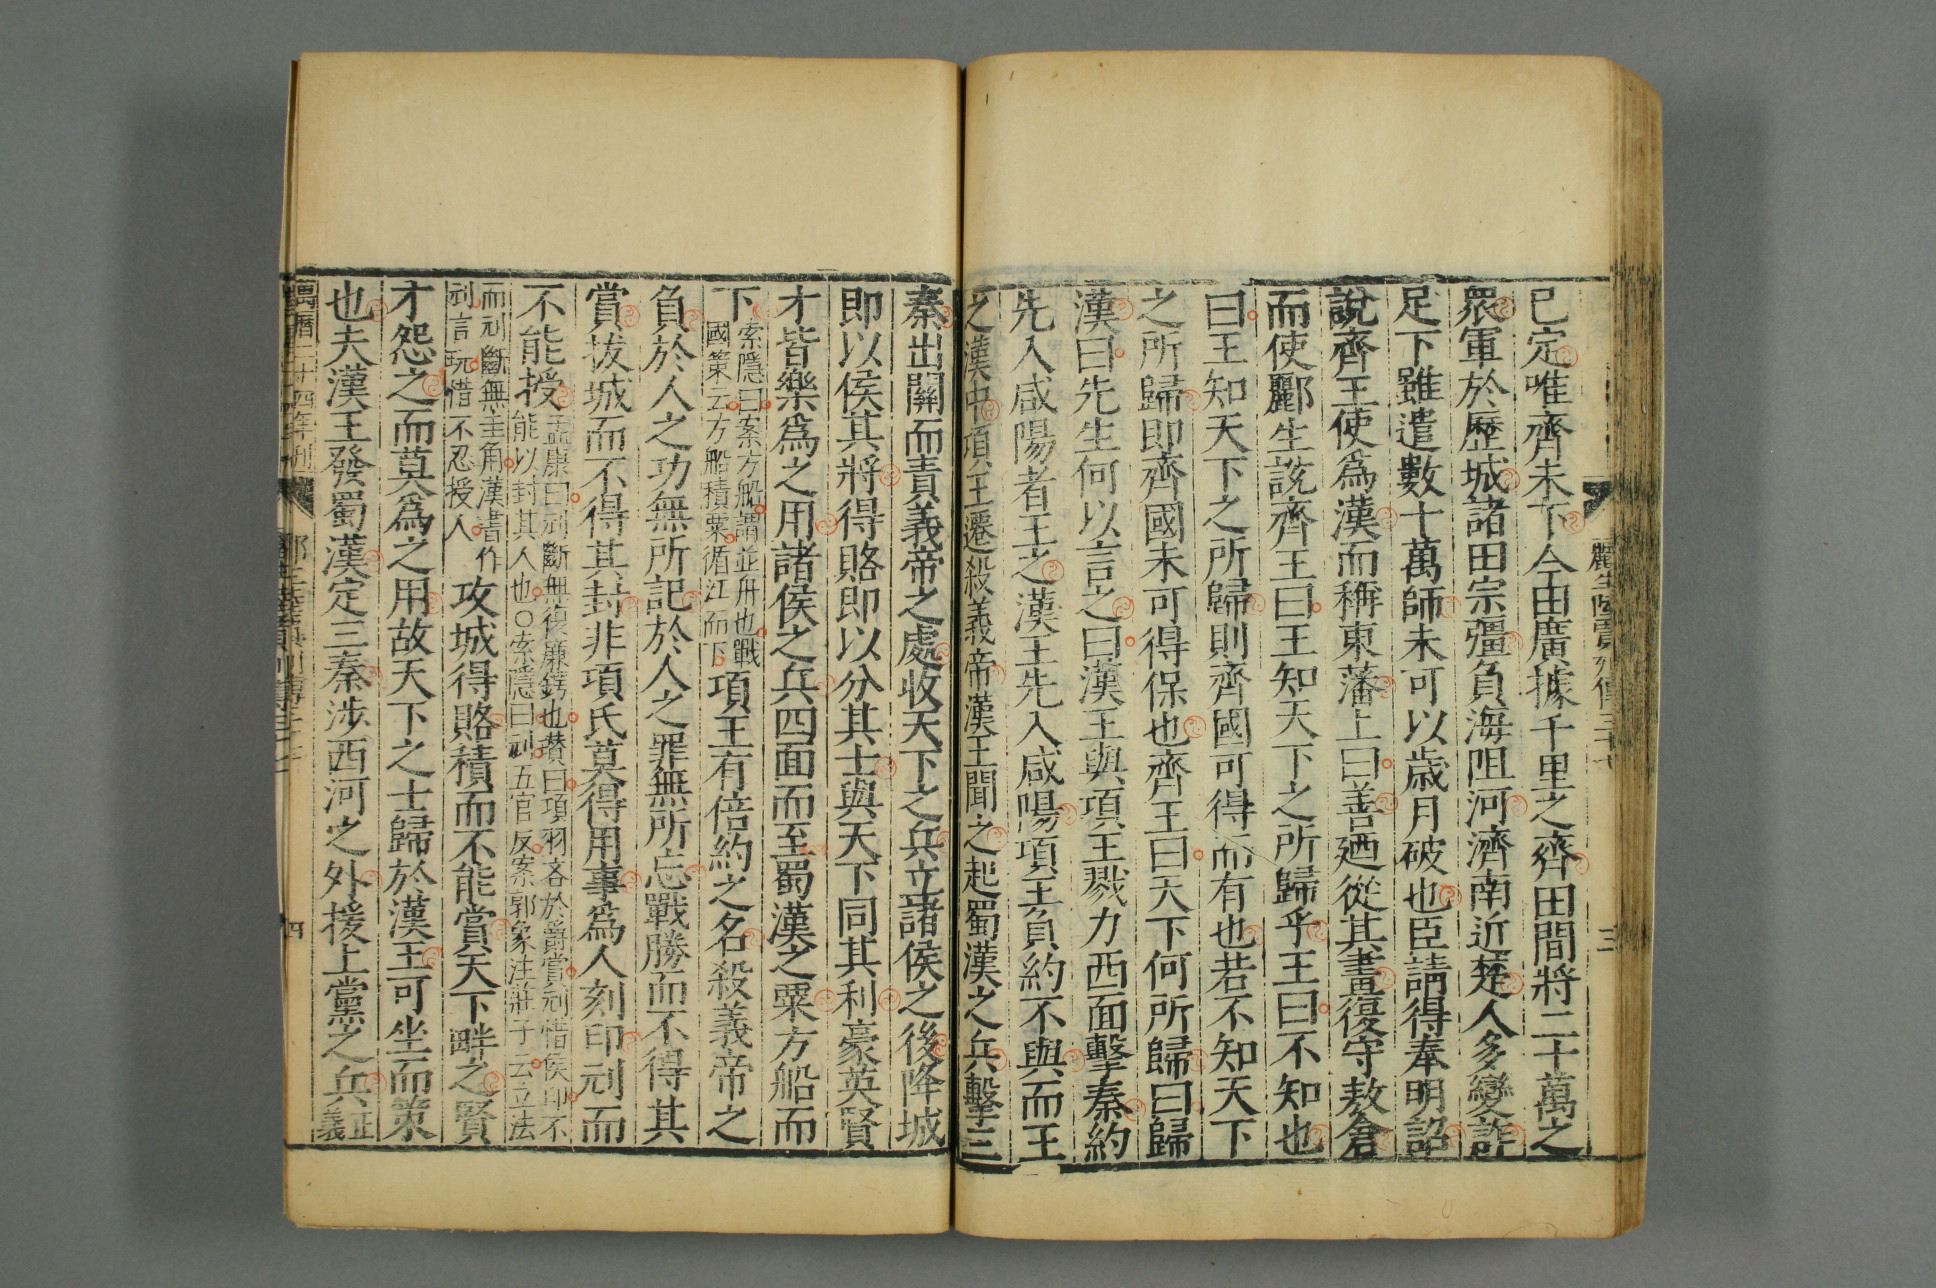 酈生陸賈列傳三十七
三
已定唯齊未下今田廣據千里之齊田間將二十萬之
衆軍於歷城諸田宗彊負海阻河濟南近楚人多變詐
足下雖遣數十萬師未可以歲月破也臣請得奉明詔
說齊王使爲漢而稱東藩上曰善廼從其畫復守敖倉
而使酈生說齊王曰王知天下之所歸乎王曰不知也
曰王知天下之所歸則齊國可得而有也若不知天下
之所歸即齊國未可得保也齊王曰天下何所歸曰歸
漢曰先生何以言之曰漢王與項王戮力西面擊秦約
先入咸陽者王之漢王先入咸陽項王負約不與而王
之漢中項王遷殺義帝漢王聞之起蜀漢之兵擊三
秦出關而責義帝之處收天下之兵立諸侯之後降城
即以侯其將得賂即以分其士與天下同其利豪英賢
才皆樂爲之用諸侯之兵四面而至蜀漢之粟方船而
下索隱曰案方船謂並舟也戰國策云方船積粟循江而下項王有倍約之名殺義帝之
負於人之功無所記於人之罪無所忘戰勝而不得其
賞拔城而不得其封非項氏莫得用事爲人刻印刓而
不能授孟康曰刓斷無復廉鍔也瓚曰項羽吝於爵賞刓惜侯印不能以封其人也○索隱曰刓五官反案郭象注莊子云立法
而刓斷無圭角漢書作刓言玩惜不忍授人攻城得賂積而不能賞天下畔之賢
才怨之而莫爲之用故天下之士歸於漢王可坐而策
也夫漢王發蜀漢定三秦涉西河之外援上黨之兵正義
萬曆二十四年刊
四